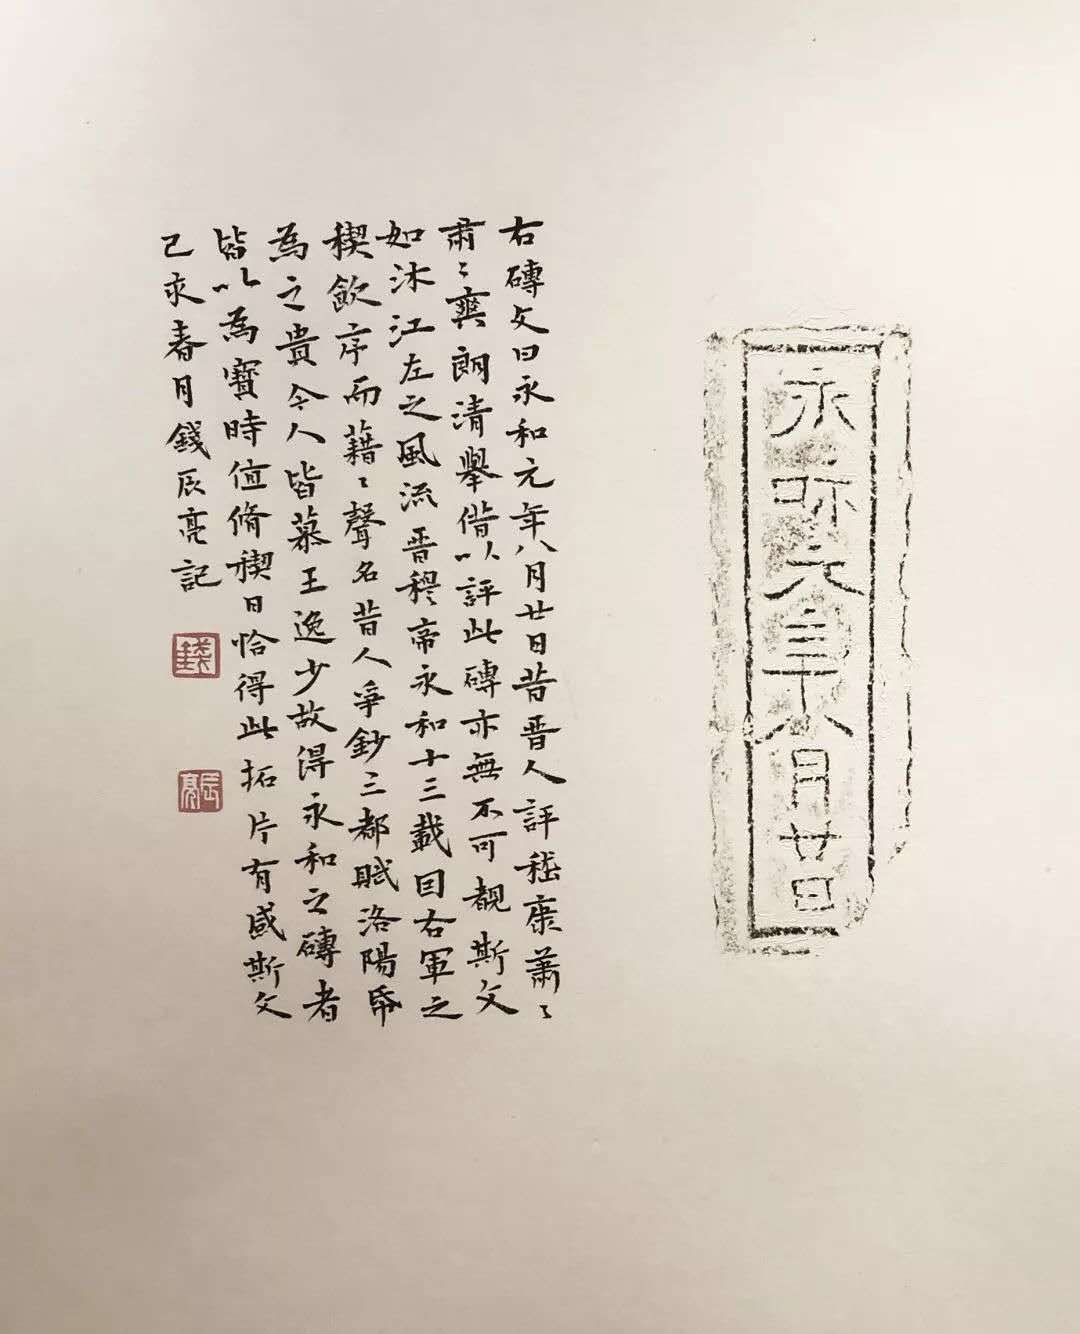 永和元年八月廿日
右磚文曰永和元年八月廿日昔晉人評嵇康蕭〻
肅〻爽朗清舉借以評此磚亦無不可覩斯文
如沐江左之風流晉穆帝永和十三載因右軍之
禊飲序而藉〻聲名昔人爭鈔三都賦洛陽帋
為之貴今人皆慕王逸少故得永和之磚者
皆以為寶時值脩禊日恰得此拓片有感斯文
己亥春月錢辰亮記
錢
辰亮